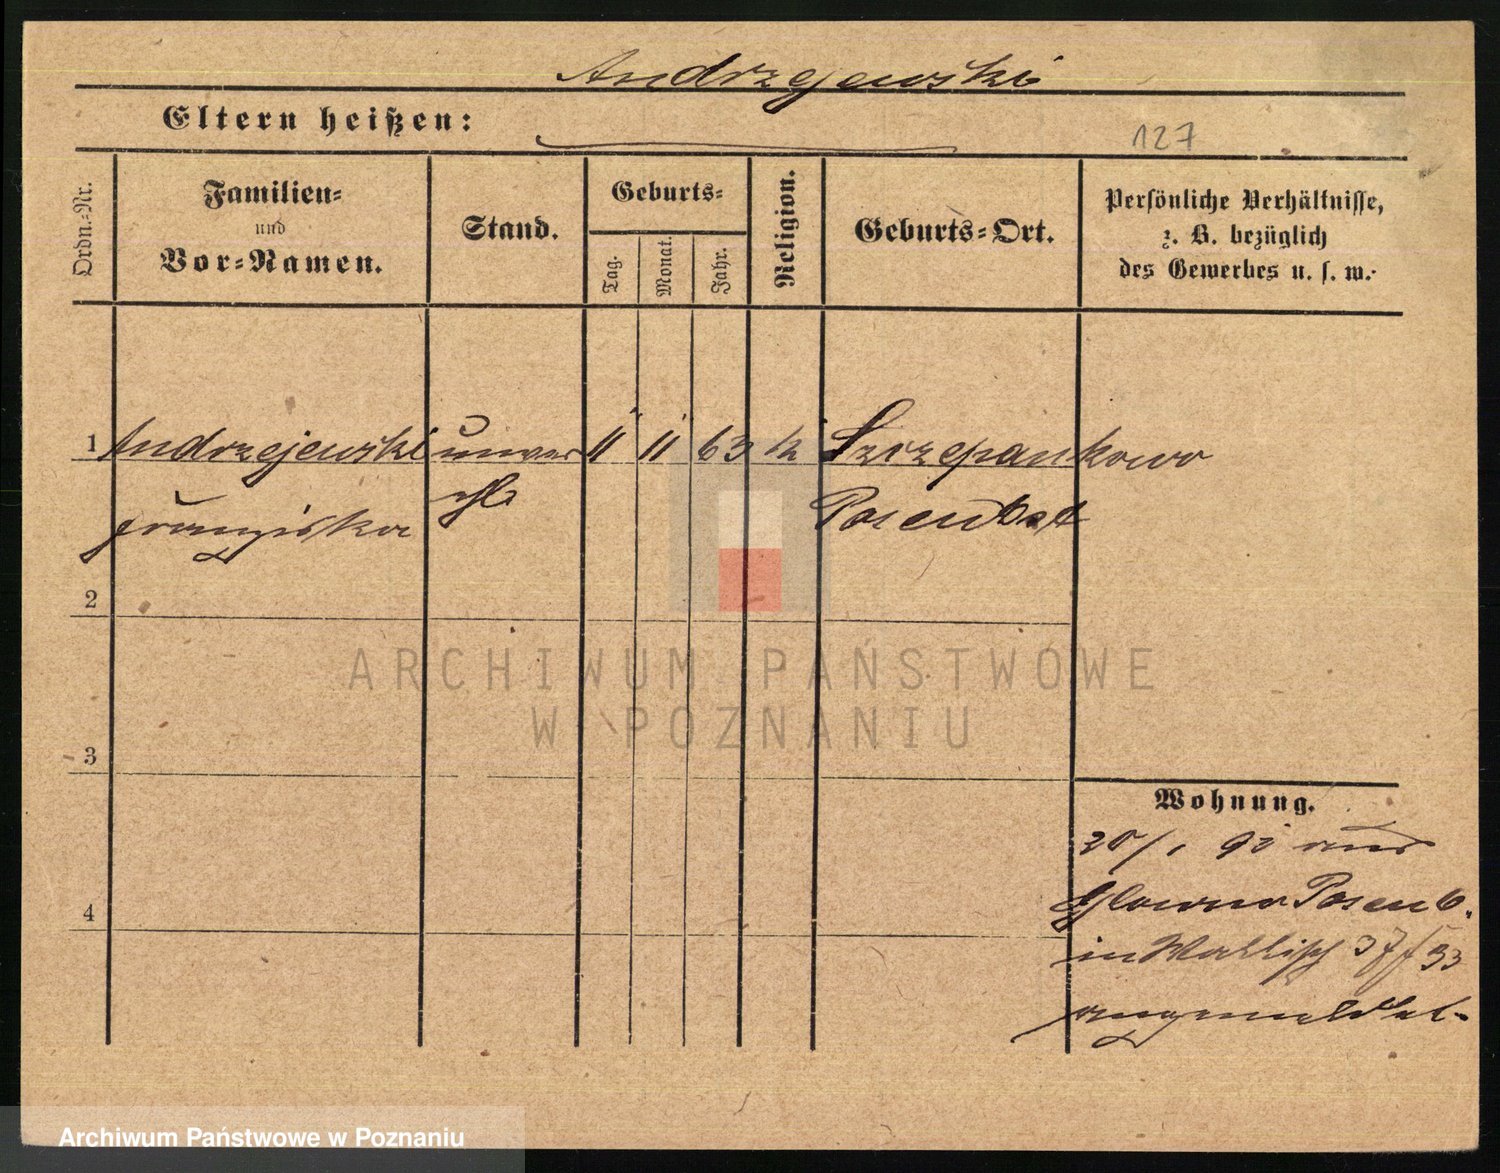 Andrzejewski
Eltern heißen:
127
Ordn.-Nr.
Familien-
und
Vor-Namen.
Stand.
Geburts-
Tag.
Monat.
Jahr.
Religion.
Geburts-Ort.
Persönliche Verhältnisse,
z. B. bezüglich
des Gewerbes u. s. w.
1 Andrzejewski unver 11 11 63 k Szczepankowo
Franziska ehl Posen Ost
2
ARCHIWUM PAŃSTWOWE
W POZNANIU
3
Wohnung.
20/1 90 aus
Glowno Posen O.
in Wallisch 37/
angemeldet
4
Archiwum Państwowe w Poznaniu